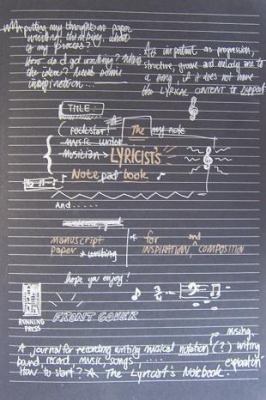 putting my thoughts on paper
writing things, what
of my process?
How do I get writing? Where's
the idea? Need some
inspiration...
As important as progression,
structure, groove and melody are to
a song, if it does not have
the LYRICAL CONTENT to support
TITLE
rockstar! The my note
music writer
musician → LYRICIST'S
Notepad book
And.....
manuscript
paper + writing
+ for
INSPIRATION and COMPOSITION
hope you enjoy!
RUNNING
PRESS
FRONT COVER
music,
A journal for recording writing musical notation (?) writing
band, read music, songs ..... exploration
How to start? A The Lyricist's Notebook.